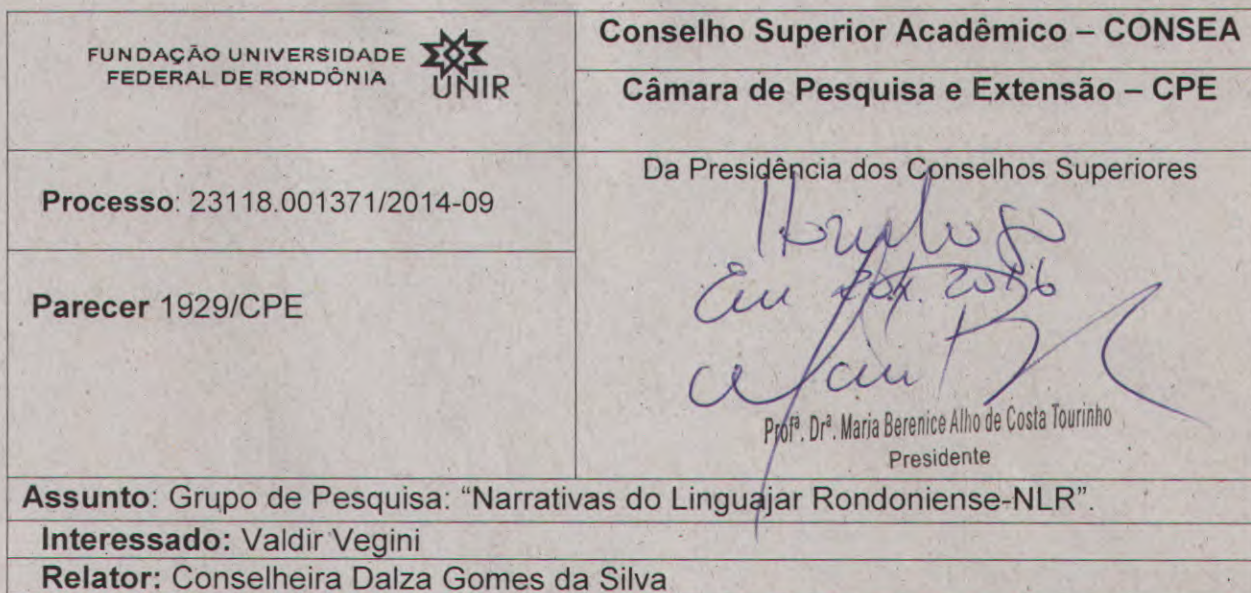 FUNDAÇÃO UNIVERSIDADE
FEDERAL DE RONDÔNIA
UNIR
Conselho Superior Acadêmico – CONSEA
Câmara de Pesquisa e Extensão – CPE
Processo: 23118.001371/2014-09
Da Presidência dos Conselhos Superiores
Homologo
Em
Parecer 1929/CPE
Profª. Drª. Maria Berenice Alho de Costa Tourinho
Presidente
Assunto: Grupo de Pesquisa: “Narrativas do Linguajar Rondoniense-NLR”.
Interessado: Valdir Vegini
Relator: Conselheira Dalza Gomes da Silva